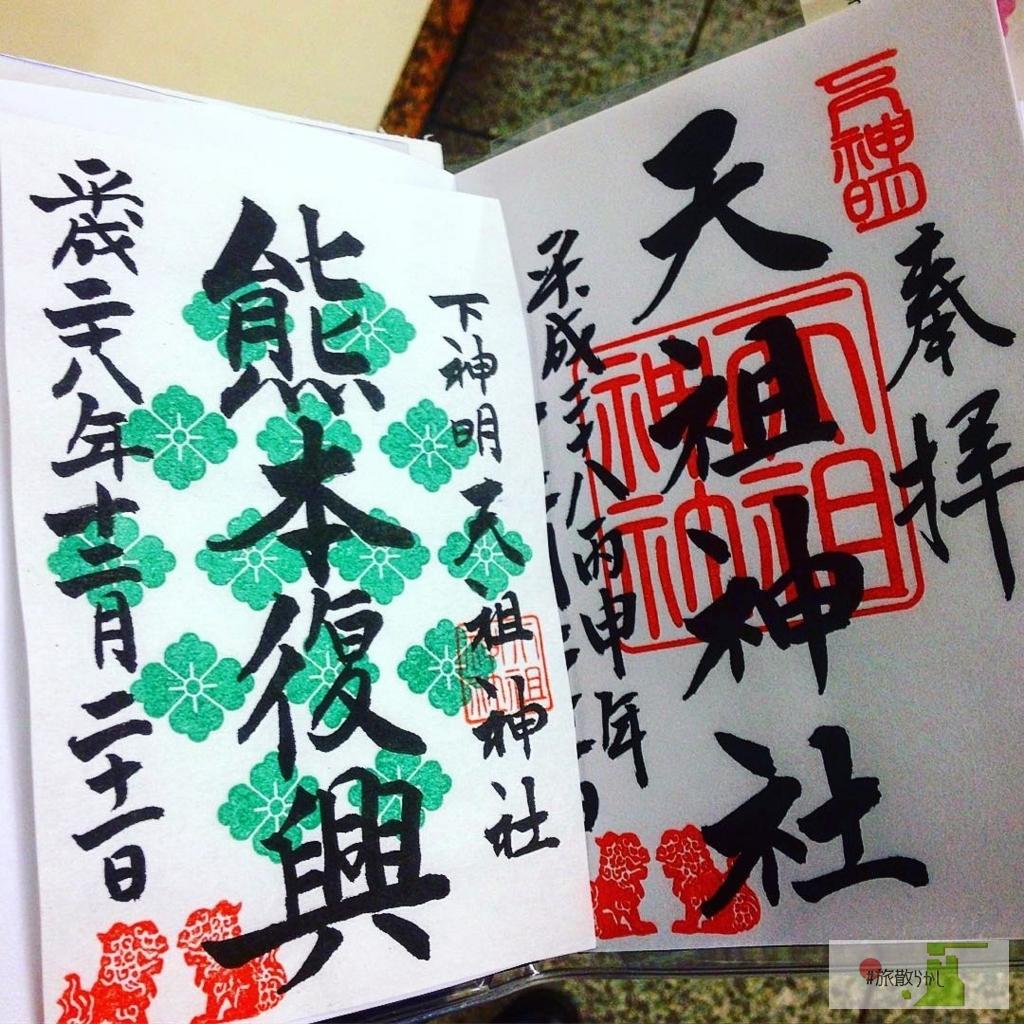 奉拝
下神明
天祖神社
天祖神社
平成二十八丙申年
下神明天祖神社
天祖神社
熊本復興
平成二十八年十二月二十一日
#旅散らかし